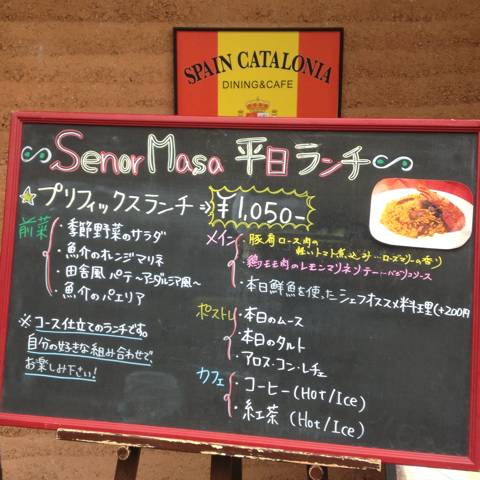 SPAIN CATALONIA
DINING&CAFE
Senor Masa 平日ランチ
プリフィックスランチ⇒ ¥1,050-
前菜
・季節野菜のサラダ
・魚介のオレンジマリネ
・田舎風パテ〜アンダルシア風〜
・魚介のパエリア
※コース仕立てのランチです。
自分の好きな組み合わせで、
お楽しみ下さい!
メイン
・豚肩ロース肉の
軽いトマト煮込み…ローズマリーの香り
・鶏モモ肉のレモンマリネソテー…バジリコソース
・本日鮮魚を使ったシェフオススメ料理(+200円
ポストレ
・本日のムース
・本日のタルト
・アロス・コン・レチェ
カフェ
・コーヒー(Hot/Ice)
・紅茶 (Hot/Ice)